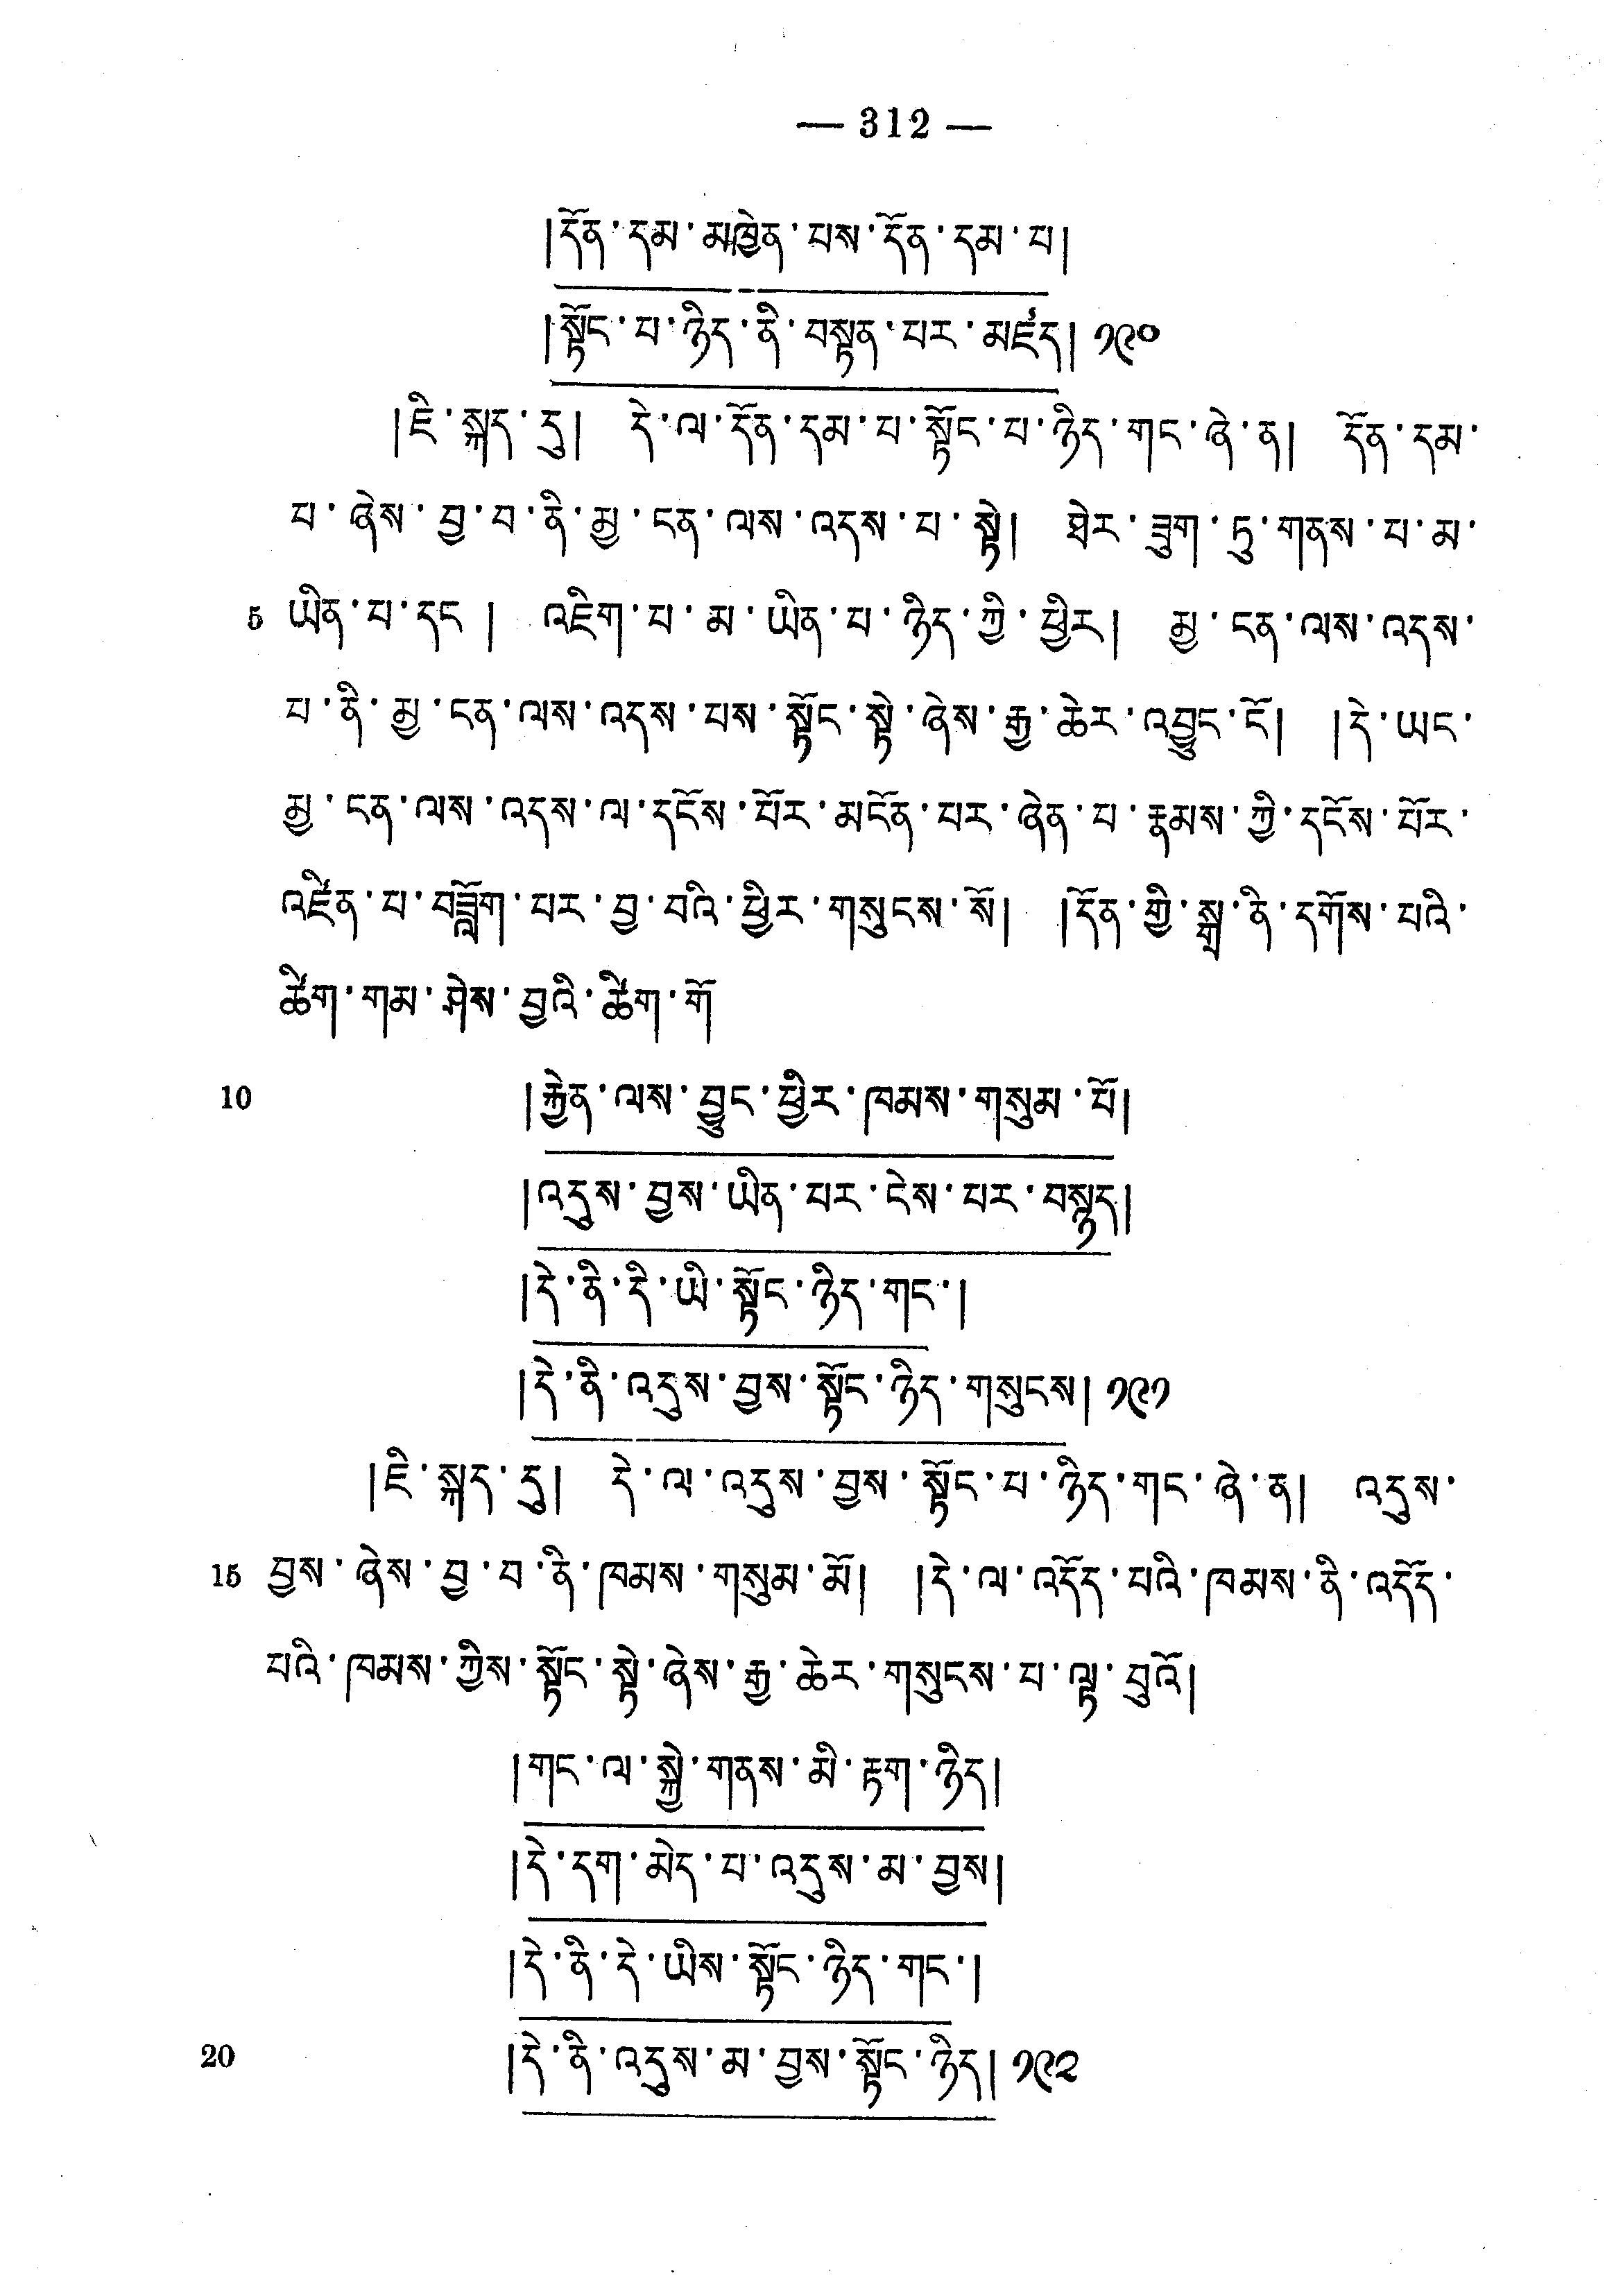 — 312 —
།དོན་དམ་མཁྱེན་པས་དོན་དམ་པ།
།སྟོང་པ་ཉིད་ནི་བསྟན་པར་མཛད། ༡༩༠
།ཇི་སྐད་དུ། དེ་ལ་དོན་དམ་པ་སྟོང་པ་ཉིད་གང་ཞེ་ན། དོན་དམ་
པ་ཞེས་བྱ་བ་ནི་མྱ་ངན་ལས་འདས་པ་སྟེ། ཐེར་ཟུག་ཏུ་གནས་པ་མ་
5 ཡིན་པ་དང། འཇིག་པ་མ་ཡིན་པ་ཉིད་ཀྱི་ཕྱིར། མྱ་ངན་ལས་འདས་
པ་ནི་མྱ་ངན་ལས་འདས་པས་སྟོང་སྟེ་ཞེས་རྒྱ་ཆེར་འབྱུང་ངོ། །དེ་ཡང་
མྱ་ངན་ལས་འདས་ལ་དངོས་པོར་མངོན་པར་ཞེན་པ་རྣམས་ཀྱི་དངོས་པོར་
འཛིན་པ་བཟློག་པར་བྱ་བའི་ཕྱིར་གསུངས་སོ། །དོན་གྱི་སྒྲ་ནི་དགོས་པའི་
ཚིག་གམ་ཤེས་བྱའི་ཚིག་གོ
10 །རྐྱེན་ལས་བྱུང་ཕྱིར་ཁམས་གསུམ་པོ།
།འདུས་བྱས་ཡིན་པར་ངེས་པར་བསྙད།
།དེ་ནི་དེ་ཡི་སྟོང་ཉིད་གང་།
།དེ་ནི་འདུས་བྱས་སྟོང་ཉིད་གསུངས། ༡༩༡
།ཇི་སྐད་དུ། དེ་ལ་འདུས་བྱས་སྟོང་པ་ཉིད་གང་ཞེ་ན། འདུས་
15 བྱས་ཞེས་བྱ་བ་ནི་ཁམས་གསུམ་མོ། །དེ་ལ་འདོད་པའི་ཁམས་ནི་འདོད་
པའི་ཁམས་ཀྱིས་སྟོང་སྟེ་ཞེས་རྒྱ་ཆེར་གསུངས་པ་ལྟ་བུའོ།
།གང་ལ་སྐྱེ་གནས་མི་རྟག་ཉིད།
།དེ་དག་མེད་པ་འདུས་མ་བྱས།
།དེ་ནི་དེ་ཡིས་སྟོང་ཉིད་གང་།
20 །དེ་ནི་འདུས་མ་བྱས་སྟོང་ཉིད། ༡༩༢